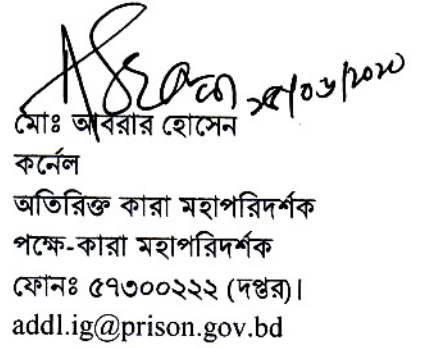 ২৫/০৬/২০২০
মোঃ আবরার হোসেন
কর্নেল
অতিরিক্ত কারা মহাপরিদর্শক
পক্ষে-কারা মহাপরিদর্শক
ফোনঃ ৫৭৩০০২২২ (দপ্তর)।
addl.ig@prison.gov.bd